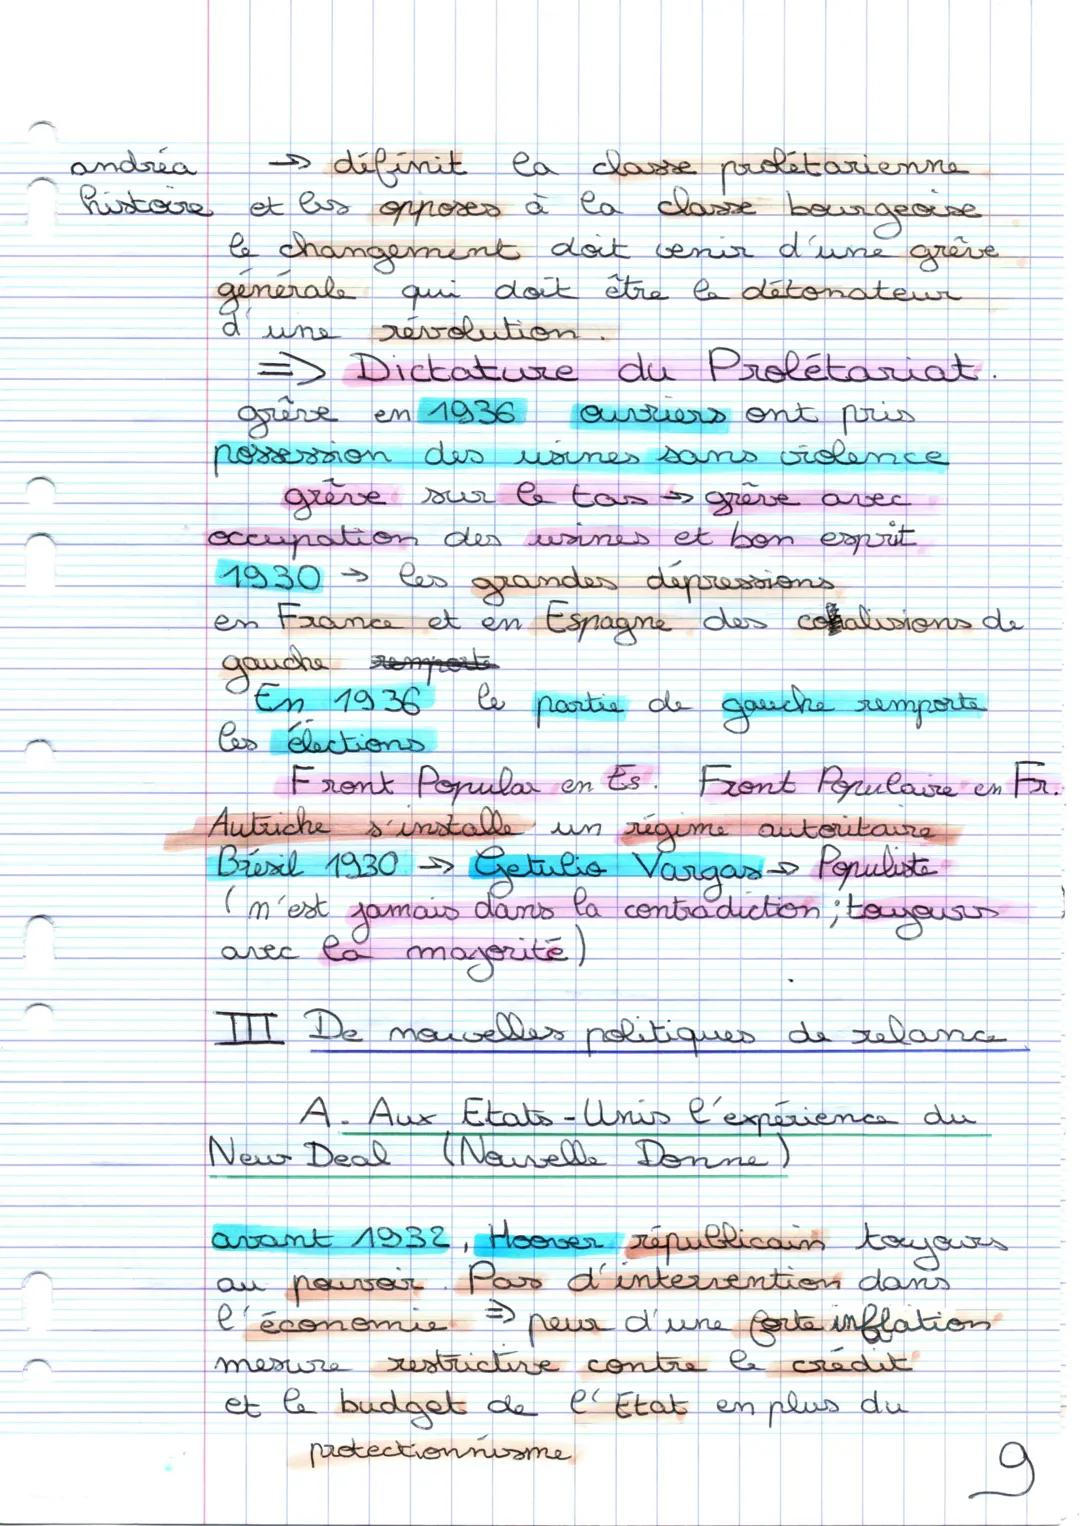 andréa → définit la classe prolétarienne
histoire et les opposes à la classe bourgeoise
le changement doit venir d'une grêve
générale qui doit être le détonateur
d'une révolution.
=> Dictature du Prolétariat.
grêve en 1936 ouvriers ont pris
possession des usines sans violence
grêve sur le tas → grêve avec
occupation des usines et bon esprit
1930 → les grandes dépressions
en France et en Espagne des coalisions de
gauche remporte
En 1936 le partie de gauche remporte
les élections
Front Popular en Es. Front Populaire en Fr.
Autriche s'installe un régime autoritaire
Brésil 1930 → Getulio Vargas → Populiste
(n'est jamais dans la contradiction ; toujours
avec la majorité)
III De nouvelles politiques de relance
A. Aux Etats-Unis l'expérience du
New Deal (Nouvelle Donne)
avant 1932, Hoover républicain toujours
au pouvoir. Pas d'intervention dans
l'économie => peur d'une forte inflation
mesure restrictive contre le crédit
et le budget de l'Etat en plus du
protectionnisme
9